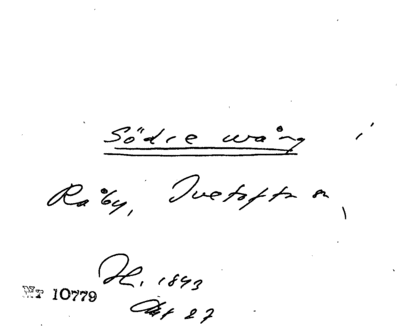 Södre wång i
Råby, Ivetofta sn,
H. 1843
Akt 27
WT 10779